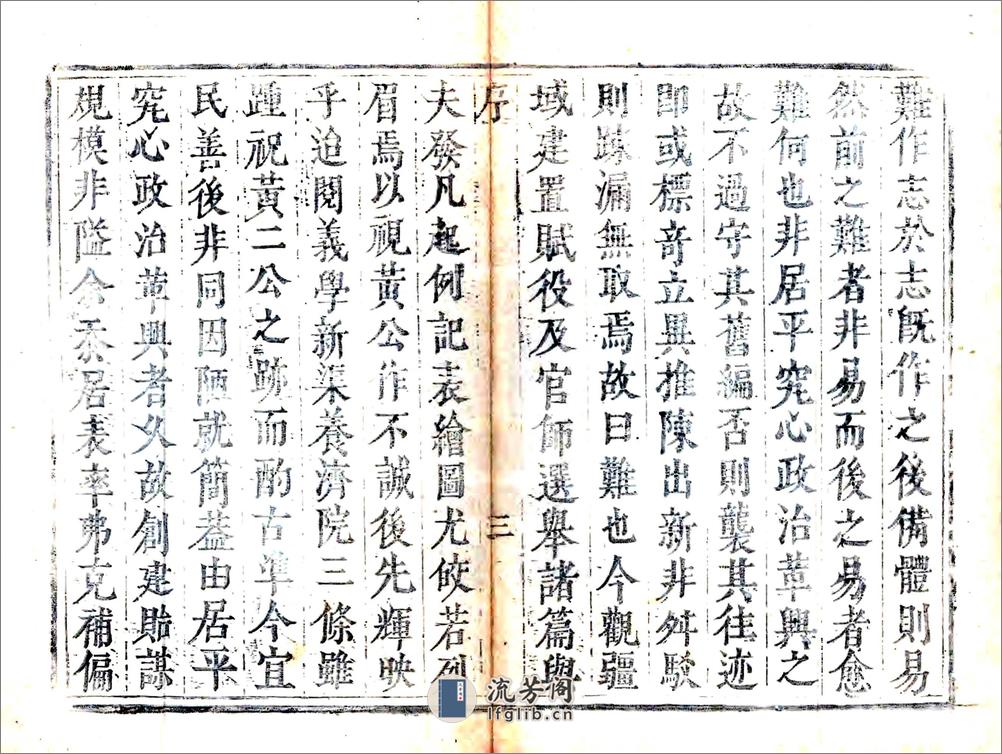 難作志於志旣作之後備體則易
然前之難者非易而後之易者愈
難何也非居平究心政治革興之
故不過守其舊編否則襲其往迹
即或標竒立異推陳出新非舛駁
則踈漏無取焉故曰難也今觀疆
域建置賦役及官師選舉諸篇與
序
三
夫發凡起例記表繪圖尤皎若列
眉焉以視黃公作不誠後先輝映
乎迨閱義學新渠養濟院三條雖
踵祝黃二公之跡而酌古準今宜
民善後非同因陋就簡葢由居平
究心政治革興者久故創建貽謀
規模非隘令忝居表率弗克補偏
流芳阁
lfglib.cn